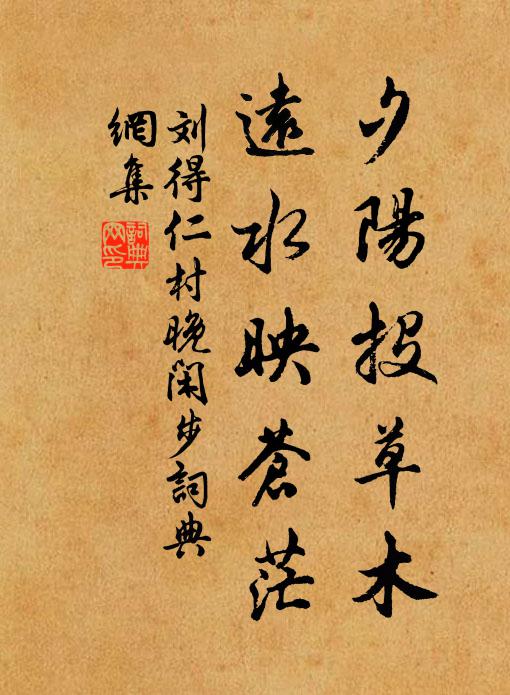 夕陽投草木
遠水映蒼茫
刘得仁村晚閑步詞典
網集
詞典
网印